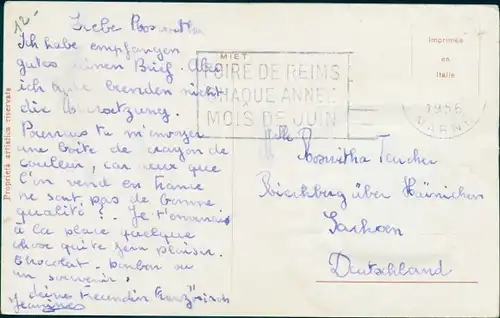 12-
Liebe Roswitha
Ich habe empfangen
gutes deinen Brief. Aber
ich habe nicht
die Übersetzung.
Pourrais tu m'envoyer
une boîte de crayon de
couleur, car ceux que
l'on vend en France
ne sont pas de bonne
qualité? Je t'enverrais
à la place quelque
chose qui te fera plaisir.
Chocolat. bonbon ou
un souvenir?
deine Freundin Französisch
Jeannine
Proprietà artistica riservata
FOIRE DE REIMS
CHAQUE ANNEE
MOIS DE JUIN
Imprimée
en
Italie
1956
MARNE
Mlle Roswitha
Bischberg über Hainichen
Sachsen
Deutschland